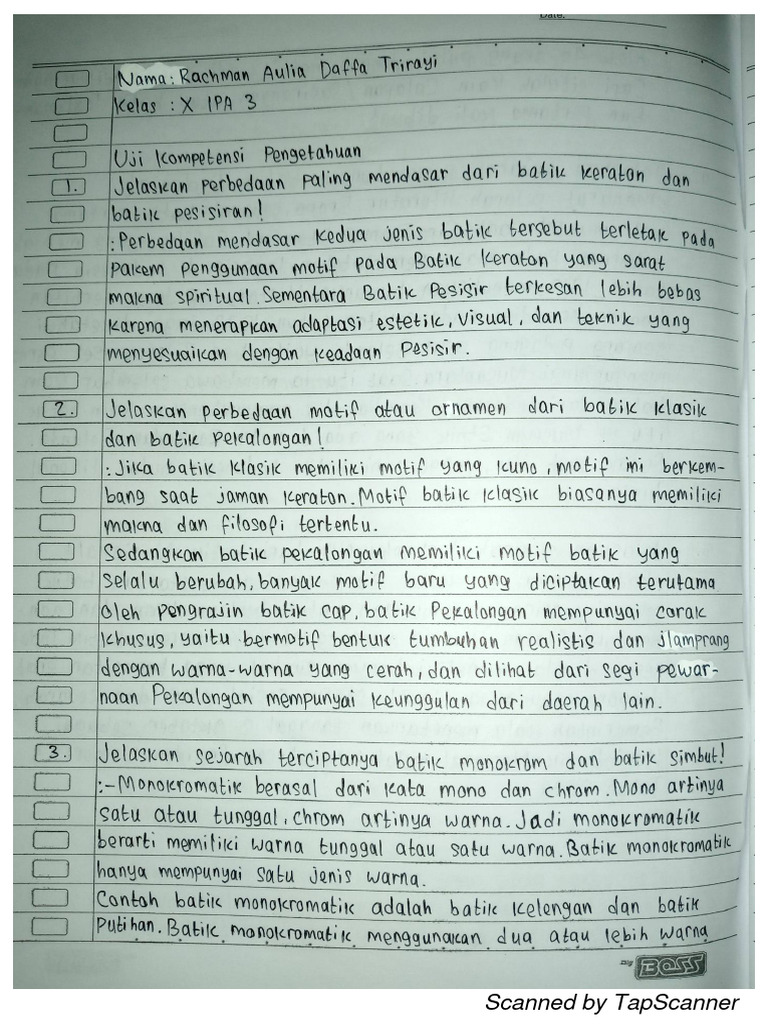 Date:
Nama: Rachman Aulia Daffa Trirayi
Kelas : X IPA 3
Uji Kompetensi Pengetahuan
1. Jelaskan perbedaan paling mendasar dari batik keraton dan
batik pesisiran!
: Perbedaan mendasar kedua jenis batik tersebut terletak pada
pakem penggunaan motif pada Batik Keraton yang sarat
makna spiritual. Sementara Batik Pesisir terkesan lebih bebas
karena menerapkan adaptasi estetik, visual, dan teknik yang
menyesuaikan dengan keadaan Pesisir.
2. Jelaskan perbedaan motif atau ornamen dari batik klasik
dan batik pekalongan!
: Jika batik klasik memiliki motif yang kuno, motif ini berkem-
bang saat jaman keraton. Motif batik klasik biasanya memiliki
makna dan filosofi tertentu.
Sedangkan batik pekalongan memiliki motif batik yang
selalu berubah, banyak motif baru yang diciptakan terutama
oleh pengrajin batik cap, batik Pekalongan mempunyai corak
khusus, yaitu bermotif bentuk tumbuhan realistis dan jlamprang
dengan warna-warna yang cerah, dan dilihat dari segi pewar-
naan Pekalongan mempunyai keunggulan dari daerah lain.
3. Jelaskan sejarah terciptanya batik monokrom dan batik simbut!
:- Monokromatik berasal dari kata mono dan chrom. Mono artinya
satu atau tunggal, chrom artinya warna. Jadi monokromatik
berarti memiliki warna tunggal atau satu warna. Batik monokromatik
hanya mempunyai satu jenis warna.
Contoh batik monokromatik adalah batik kelengan dan batik
Putihan. Batik monokromatik menggunakan dua atau lebih warna
BOSS
Scanned by TapScanner